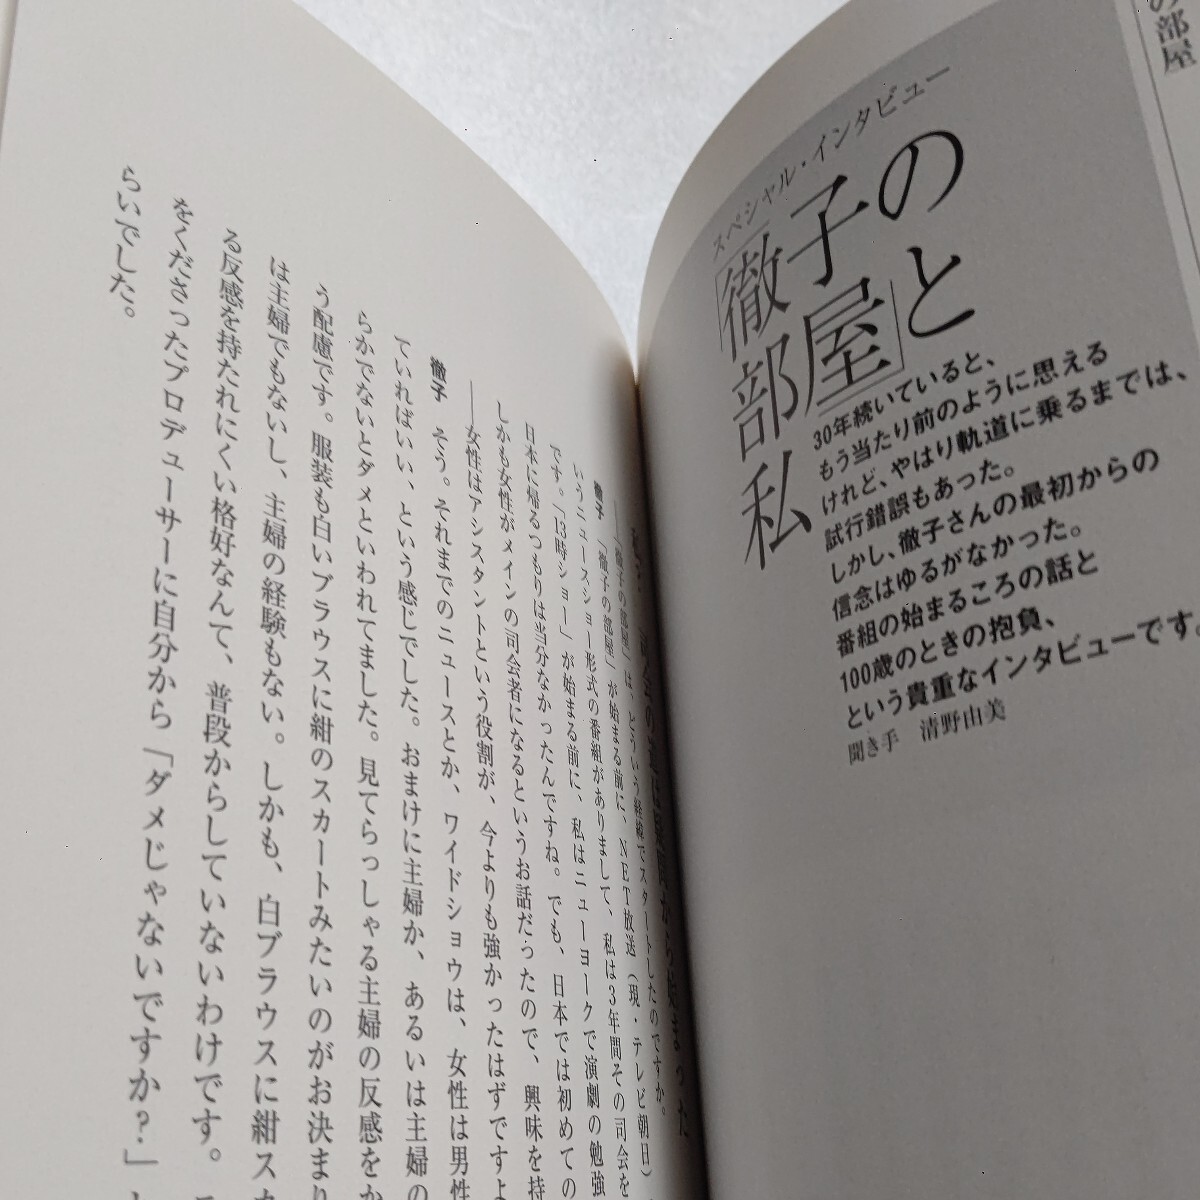 の部屋
スペシャル・インタビュー
「徹子の
部屋」と
私
30年続いていると、
もう当たり前のように思える
けれど、やはり軌道に乗るまでは、
試行錯誤もあった。
しかし、徹子さんの最初からの
信念はゆるがなかった。
番組の始まるころの話と
100歳のときの抱負、
という貴重なインタビューです。
聞き手 清野由美
──「徹子の部屋」は、どういう経緯でスタートしたのですか。
徹子 「徹子の部屋」が始まる前に、NET放送(現・テレビ朝日)
いうニュースショー形式の番組がありまして、私は3年間その司会を
です。「13時ショー」が始まる前に、私はニューヨークで演劇の勉強
日本に帰るつもりは当分なかったんですね。でも、日本では初めての
しかも女性がメインの司会者になるというお話だったので、興味を持
──女性はアシスタントという役割が、今よりも強かったはずですよ
徹子 そう。それまでのニュースとか、ワイドショウは、女性は男性
ていればいい、という感じでした。おまけに主婦か、あるいは主婦の
らかでないとダメといわれてました。見てらっしゃる主婦の反感をか
う配慮です。服装も白いブラウスに紺のスカートみたいのがお決まり
は主婦でもないし、主婦の経験もない。しかも、白ブラウスに紺スカ
る反感を持たれにくい格好なんて、普段からしていないわけです。
をくださったプロデューサーに自分から「ダメじゃないですか?」
らいでした。